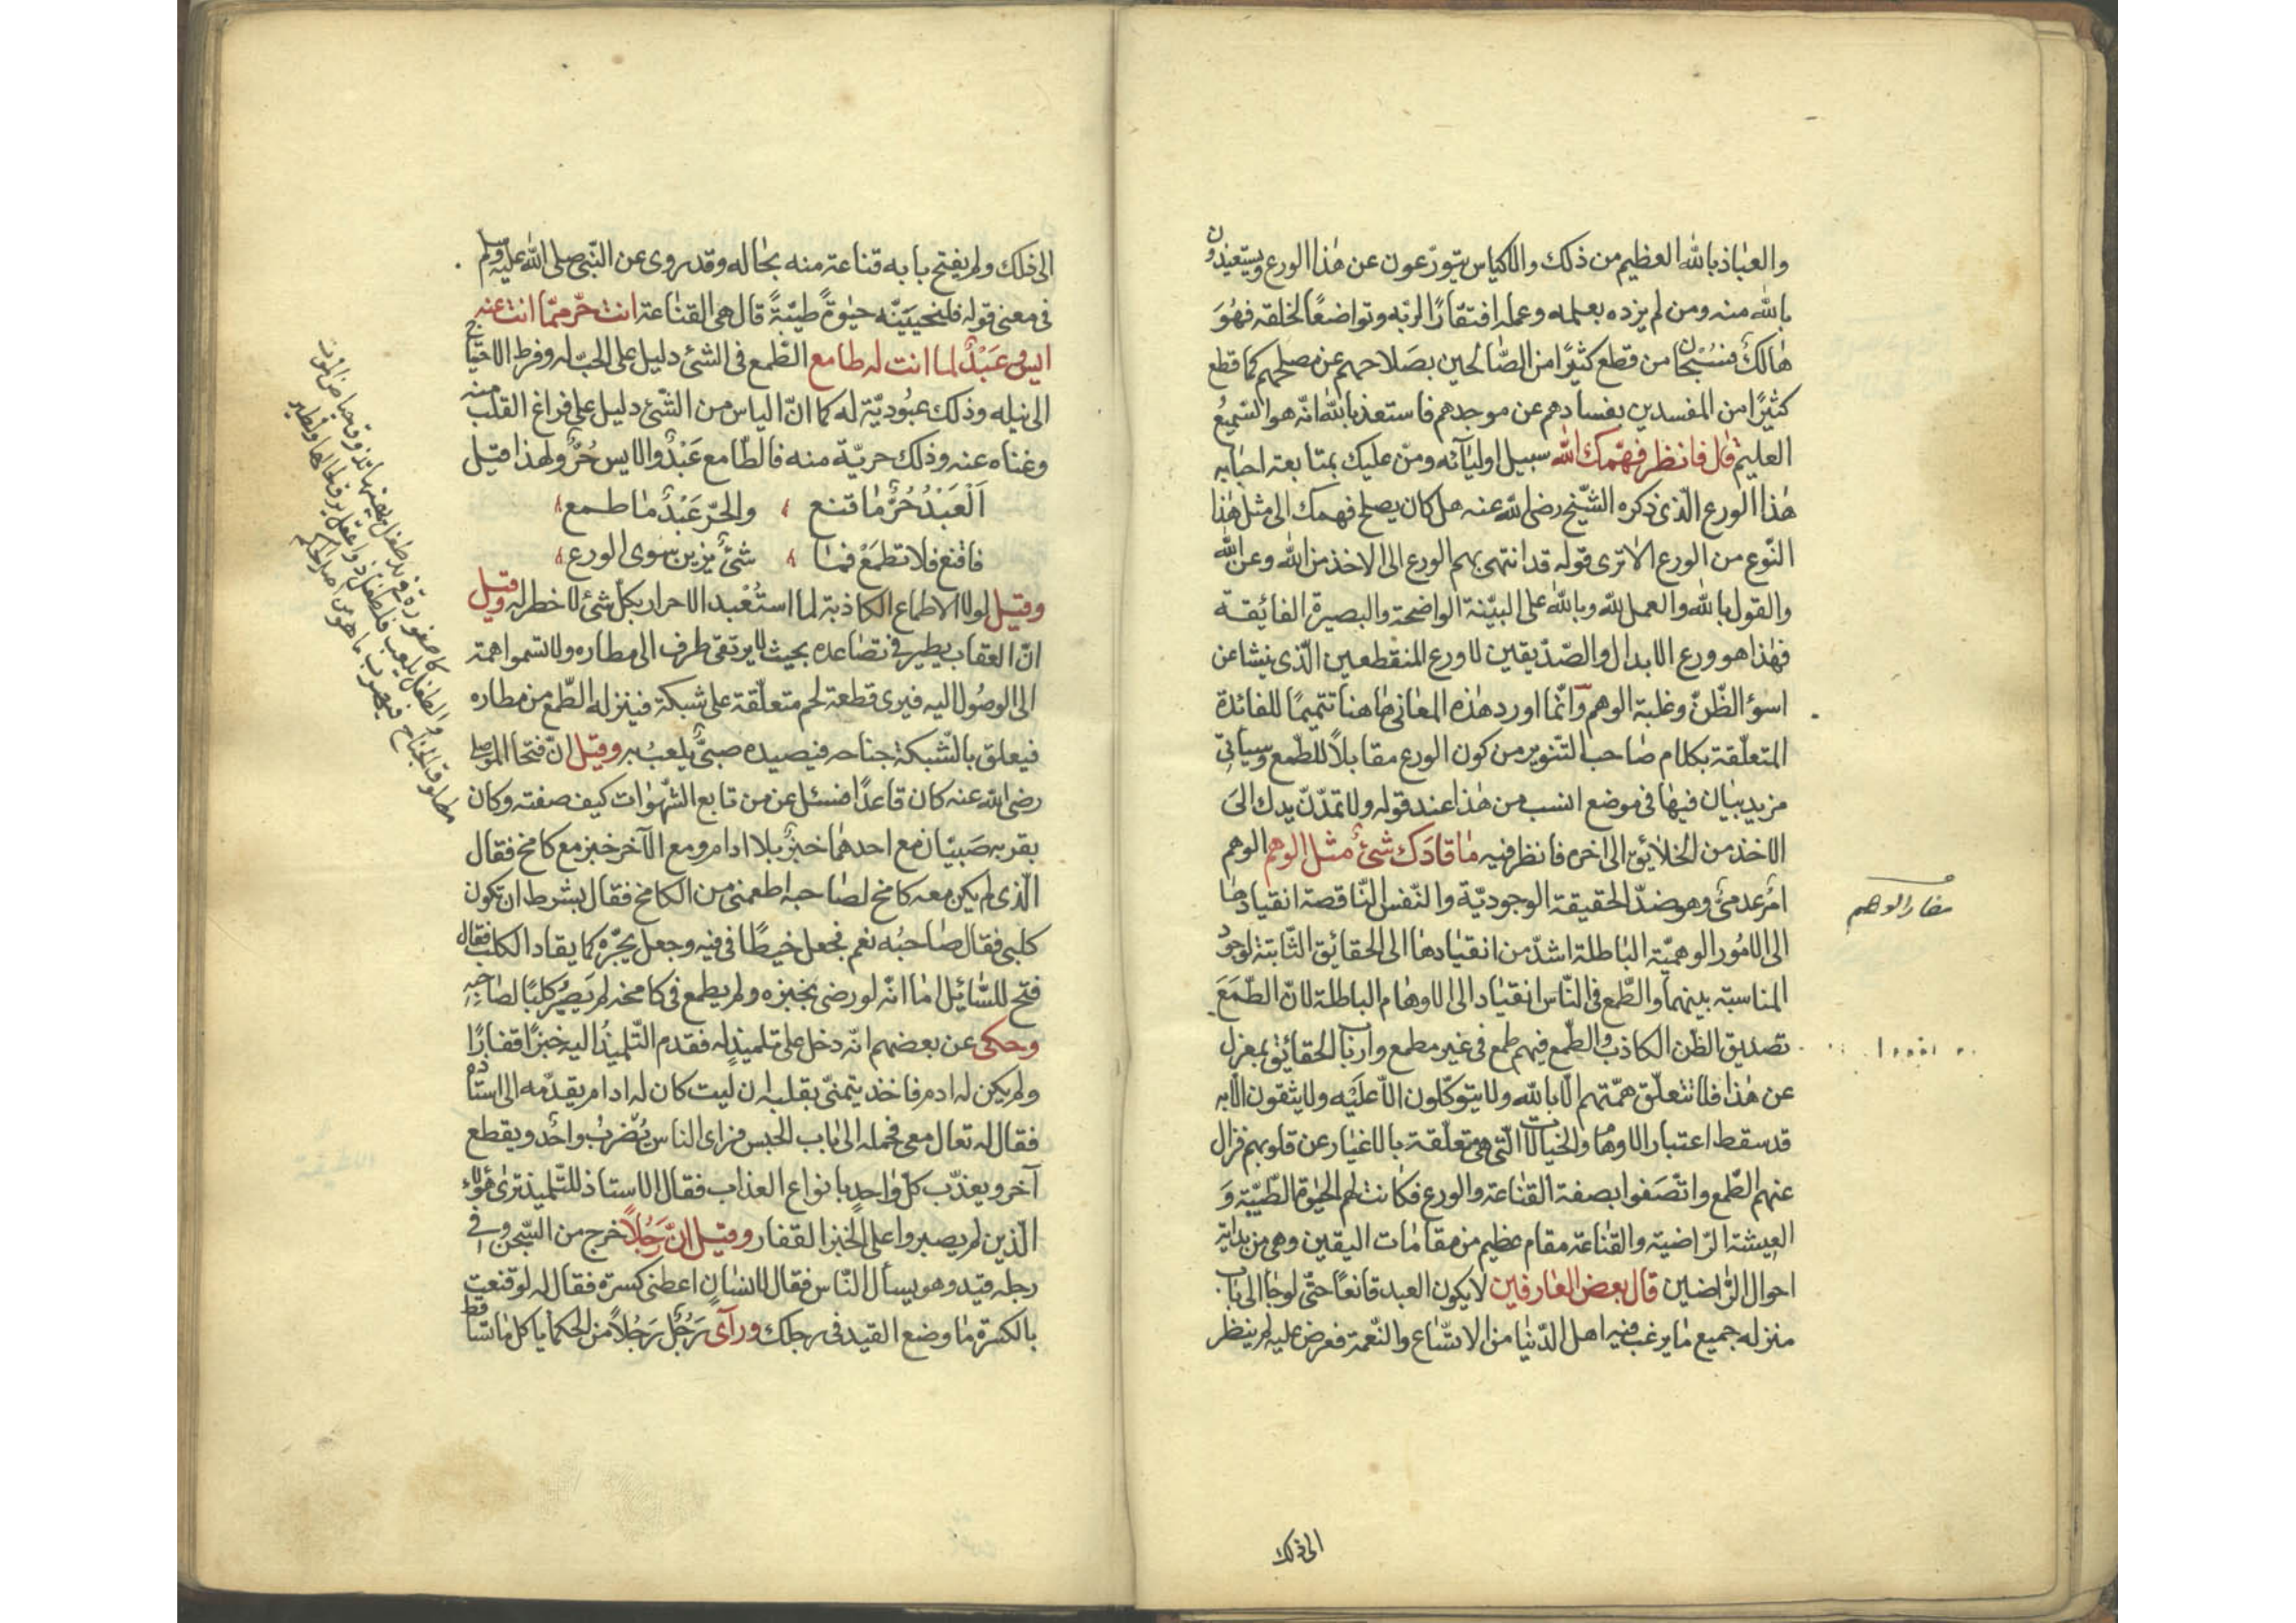 والعياذ بالله العظيم من ذلك والاكياس يتورّعون عن هذا الورع ويستعيذون
بالله منه ومن لم يزده بعلمه وعمله افتقارًا لربّه وتواضعًا لخلقه فهُوَ
هالكٌ فسُبْحان من قطع كثيرًا من الصّالحين بصَلاحهم عن مصلحهم كما قطع
كثيرًا من المفسدين بفسادهم عن موجدهم فاستعذ بالله انّه هو السّميعُ
العليم قال فانظر فهّمك الله سبيل اوليآئه ومنّ عليك بمتابعة احبابه
هذا الورع الّذى ذكره الشّيخ رضى الله عنه هل كان يصلح فهمك الى مثل هذا
النّوع من الورع الا ترى قوله قد انتهى بهم الورع الى الاخذ من الله وعن الله
والقول بالله والعمل لله وبالله على البيّنة الواضحة والبصيرة الفائقة
فهذا هو ورع الابدال والصّدّيقين لا ورع المنقطعين الّذى ينشا عن
اسوء الظّنّ وغلبة الوهم وانّما اورد هذه المعانى هاهنا تتميمًا للفائدة
المتعلّقة بكلام صاحب التّنوير من كون الورع مقابلاً للطّمع وسيأتى
مزيد بيان فيها فى موضع انسب من هذا عند قوله ولا تمدّنّ يدك الى
الاخذ من الخلايق الى اخره فانظر فيه مَا قادَك شئٌ مثل الوهم الوهم
امرٌ عدمىٌ وهو ضدّ الحقيقة الوجوديّة والنّفس النّاقصة انقيادها
الى الامُور الوهميّة الباطلة اشدّ من انقيادها الى الحقائق الثّابتة لوجود
المناسبة بينهما والطّمع فى النّاس انقياد الى الاوهام الباطلة لانّ الطّمَعَ
تصديق الظّن الكاذب والطّمع فيهم طمع فى غير مطمع وارباب الحقائق بمعزل
عن هذا فلا تتعلّق همّتهم الّا بالله ولا يتوكّلون الاّ عليه ولا يثقون الّا به
قد سقط اعتبار الاوهام والخيالات الّتى هى متعلّقة بالاغيار عن قلوبهم فزال
عنهم الطّمع واتّصَفوا بصفة القناعة والورع فكانت لهم الحيوة الطّيّبة وَ
العيشة الرّاضية والقناعة مقام عظيم من مقامات اليقين وهى من بداية
احوال الرّاضين قال بعض العارفين لا يكون العبد قانعًا حتّى لو جا الى باب
منزله جميع ما يرغب فيه اهل الدّنيا من الاتّساع والنّعمة فعرض عليه لم ينظر
مضار الوهم
الى ذلك
الى ذلك ولم يفتح بابه قناعة منه بحاله وقد روى عن النّبى صلى الله عليه وسلم
فى معنى قوله فلنحيينّه حيوةً طيّبةً قال هى القناعة انت حرّ ممّا انت عنه
ايس وعَبْدٌ لما انت له طامع الطّمع فى الشئ دليل على الحبّ له وفرط الاحتياج
الى نيله وذلك عبُوديّة له كما انّ الياس من الشّئ دليل على فراغ القلب منه
وغناه عنه وذلك حريّة منه فالطّامع عَبْدٌ والايس حُرٌّ ولهذا قيل
اَلْعَبْدُ حُرٌّ مَا قنع ، والحرّ عَبْدٌ مَا طمع ،
فاقنع فلا تطمَعْ فما ، شئٌ يزين سوى الورع ،
وقيل لولا الاطماع الكاذبة لما استُعْبد الاحرار بكلّ شئ لا خطر له وقيل
انّ العقاب يطير فى تصاعده بحيث لا يرتقى طرف الى مطاره ولا تسموا همّة
الى الوصُول اليه فيرى قطعة لحم متعلّقة على شبكة فينزله الطّمع من مطاره
فيعلق بالشّبكة جناحه فيصيده صبىٌّ يلعبُ به وقيل انّ فتحا الموصلى
رضى الله عنه كان قاعدًا فسئل عن من تابع الشّهوات كيف صفته وكان
بقربه صَبيّان مع احدهما خبزٌ بلا ادام ومع الآخر خبز مع كامخ فقال
الّذى لم يكن معه كامخ لصاحبه اطعمنى من الكامخ فقال بشرط ان تكون
كلبى فقال صَاحبُه نعم فجعل خيطًا فى فيه وجعل يجرّه كما يقاد الكلب فقال
فتح للسّائل اما انّه لو رضى بخبزه ولم يطمع فى كامخه لم يَصِيْر كلبًا لصاحبه
وحكى عن بعضهم انّه دخل على تلميذٍ له فقدم التّلميذُ اليه خبزًا قفارًا
ولم يكن له ادم فاخذ يتمنّى بقلبه ان ليت كان له ادام يقدّمه الى استاده
فقال له تعال معى فحمله الى باب الحبس فراى الناس يُضْربُ واحد ويقطع
آخر ويعذّب كلّ واحدٍ بانواع العذاب فقال الاستاذ للتّلميذ ترى هؤلاء
الّذين لم يصبروا على الخبز القفار وقيل انّ رَجُلاً خرج من السّجن وفى
رجله قيد وهو يسأل النّاس فقال لانسانٍ اعطنى كسرة فقال له لو قنعت
بالكسرة ما وضع القيد فى رجلك ورآى رَجُلٌ رَجُلاً من الحكما ياكل ما تساقط